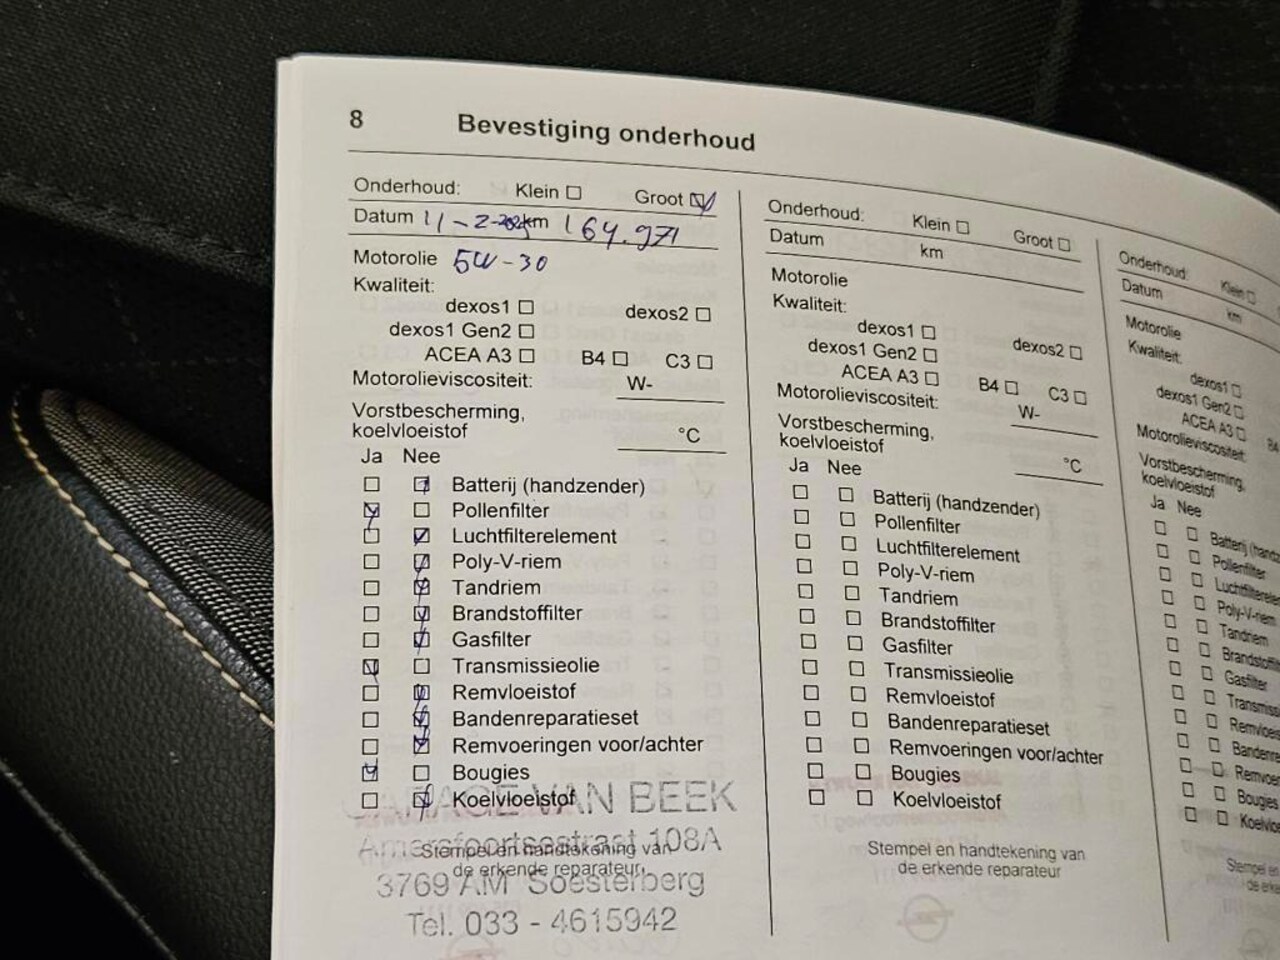 8 Bevestiging onderhoud
Onderhoud: Klein Groot
Datum 11-2- km 164.971
Motorolie 5W-30
Kwaliteit:
dexos1 dexos2
dexos1 Gen2
ACEA A3 B4 C3
Motorolieviscositeit: W-
Vorstbescherming,
koelvloeistof °C
Ja Nee
Batterij (handzender)
Pollenfilter
Luchtfilterelement
Poly-V-riem
Tandriem
Brandstoffilter
Gasfilter
Transmissieolie
Remvloeistof
Bandenreparatieset
Remvoeringen voor/achter
Bougies
Koelvloeistof
GARAGE VAN BEEK
Amersfoortsestraat 108A
Stempel en handtekening van
de erkende reparateur
3769 AM Soesterberg
Tel. 033 - 4615942
Onderhoud: Klein Groot
Datum km
Motorolie
Kwaliteit:
dexos1 dexos2
dexos1 Gen2
ACEA A3 B4 C3
Motorolieviscositeit: W-
Vorstbescherming,
koelvloeistof °C
Ja Nee
Batterij (handzender)
Pollenfilter
Luchtfilterelement
Poly-V-riem
Tandriem
Brandstoffilter
Gasfilter
Transmissieolie
Remvloeistof
Bandenreparatieset
Remvoeringen voor/achter
Bougies
Koelvloeistof
Stempel en handtekening van
de erkende reparateur
Onderhoud: Klein
Datum km
Motorolie
Kwaliteit:
dexos1
dexos1 Gen2
ACEA A3 B4
Motorolieviscositeit:
Vorstbescherming,
koelvloeistof
Ja Nee
Batterij (hand
Pollenfilter
Luchtfilterele
Poly-V-riem
Tandriem
Brandstoffilt
Gasfilter
Transmiss
Remvloeis
Bandenre
Remvoe
Bougies
Koelvloe
Stempel en
de erke